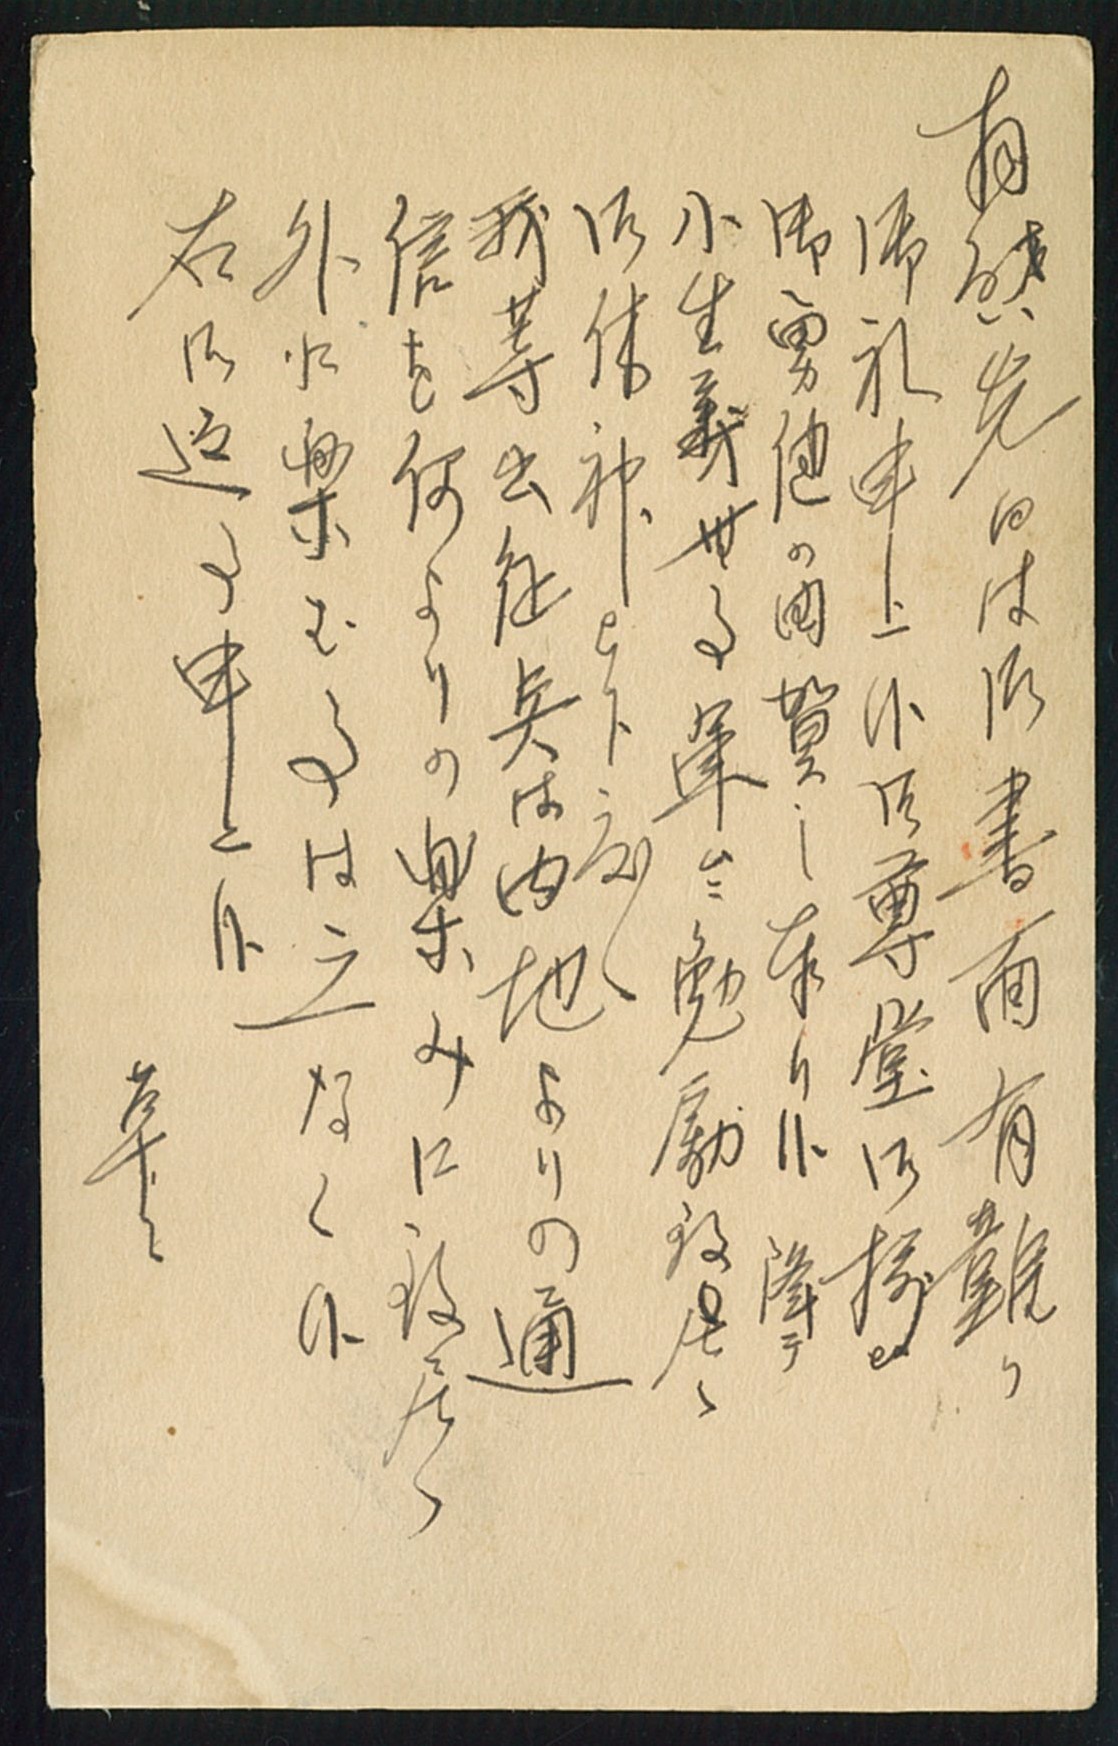 拝啓先日は御書面有難く
御礼申上候御尊堂御揃
御勇健の由賀し奉り候 降テ
小生義無事軍ムニ勉励致居り
御休神被下度
我等出征兵は内地よりの通
信を何よりの楽みに致居り
外に楽むるは之なく候
右御返事申上候
草々